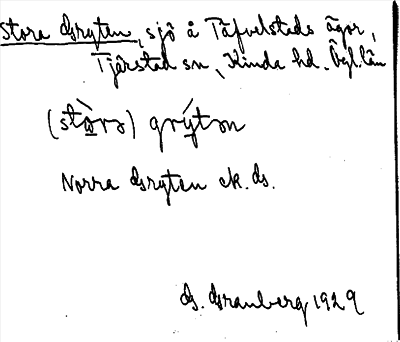 Stora Gryten, sjö å Täfvelstads ägor,
Tjärstad sn, Kinda hd. Ögl. län
(stωra) grýtən
Norra Gryten ek. ds.
G. Granberg 1929